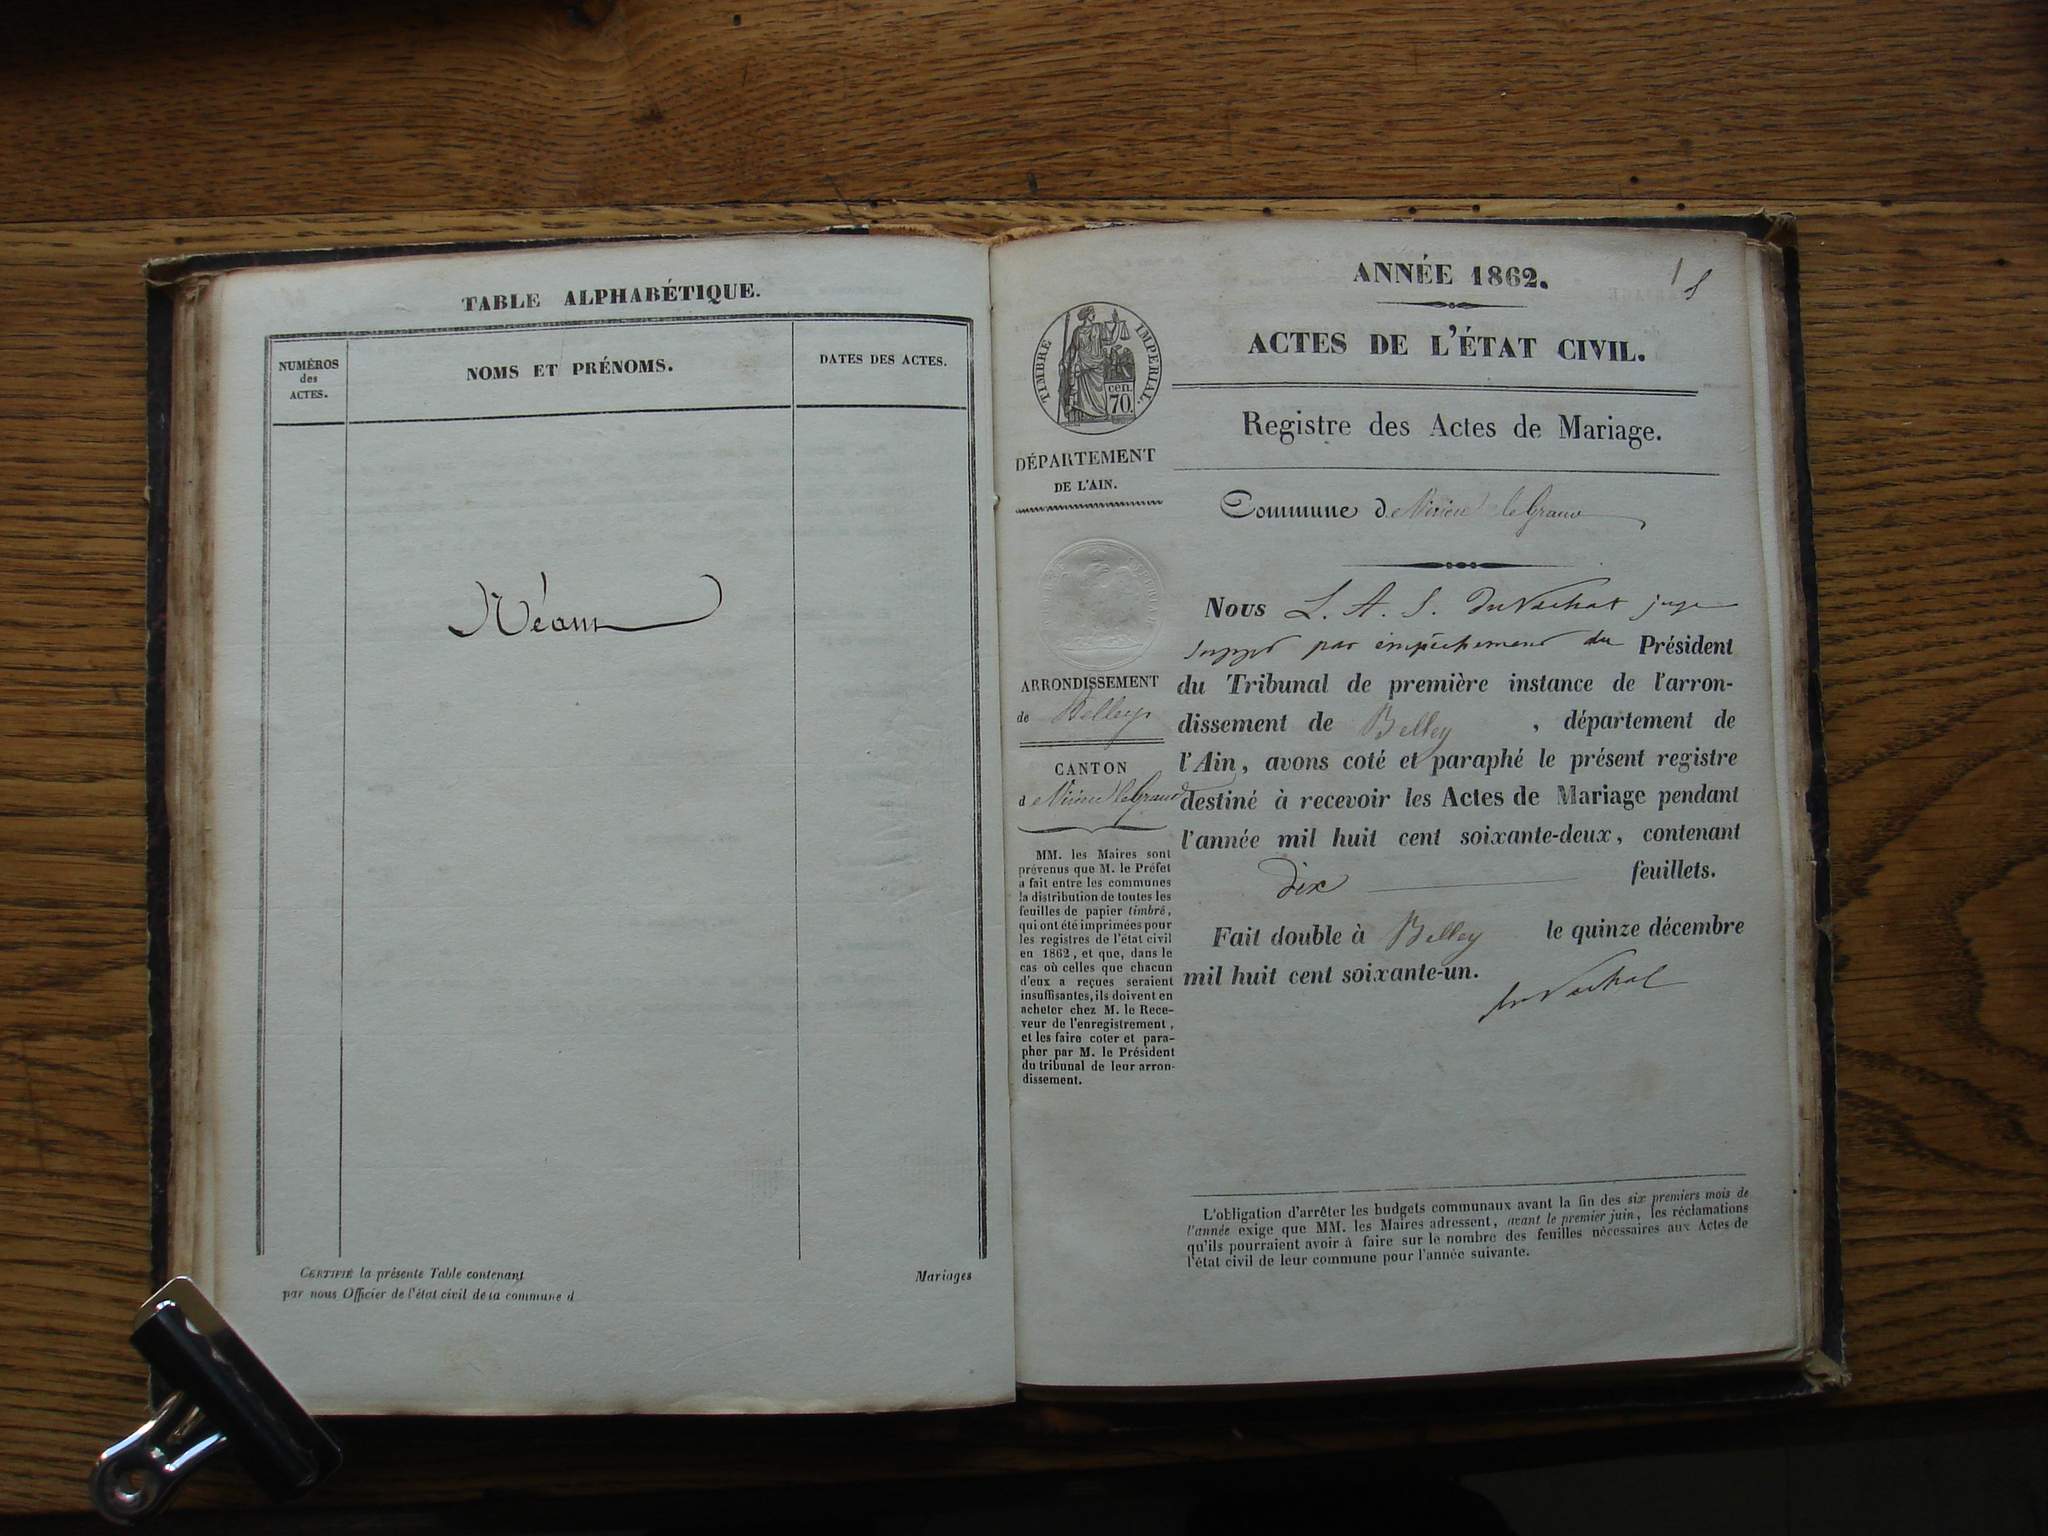 TABLE ALPHABÉTIQUE.
NUMÉROS
des
ACTES.
NOMS ET PRÉNOMS.
DATES DES ACTES.
Néant
CERTIFIÉ la présente Table contenant
Mariages
par nous Officier de l'état civil de la commune d
ANNÉE 1862.
1
ACTES DE L'ÉTAT CIVIL.
TIMBRE IMPERIAL.
cen.
70.
Registre des Actes de Mariage.
DÉPARTEMENT
DE L'AIN.
Commune de Virieu le Grand
Nous L. A. S. DuVachat juge
suppt par empêchement du Président
du Tribunal de première instance de l'arron-
dissement de Belley, département de
l'Ain, avons coté et paraphé le présent registre
destiné à recevoir les Actes de Mariage pendant
l'année mil huit cent soixante-deux, contenant
dix feuillets.
Fait double à Belley le quinze décembre
mil huit cent soixante-un.
DuVachat
ARRONDISSEMENT
de Belley
CANTON
de Virieu le Grand
MM. les Maires sont
prévenus que M. le Préfet
a fait entre les communes
la distribution de toutes les
feuilles de papier timbré,
qui ont été imprimées pour
les registres de l'état civil
en 1862, et que, dans le
cas où celles que chacun
d'eux a reçues seraient
insuffisantes, ils doivent en
acheter chez M. le Rece-
veur de l'enregistrement,
et les faire coter et para-
pher par M. le Président
du tribunal de leur arron-
dissement.
L'obligation d'arrêter les budgets communaux avant la fin des six premiers mois de
l'année exige que MM. les Maires adressent, avant le premier juin, les réclamations
qu'ils pourraient avoir à faire sur le nombre des feuilles nécessaires aux Actes de
l'état civil de leur commune pour l'année suivante.